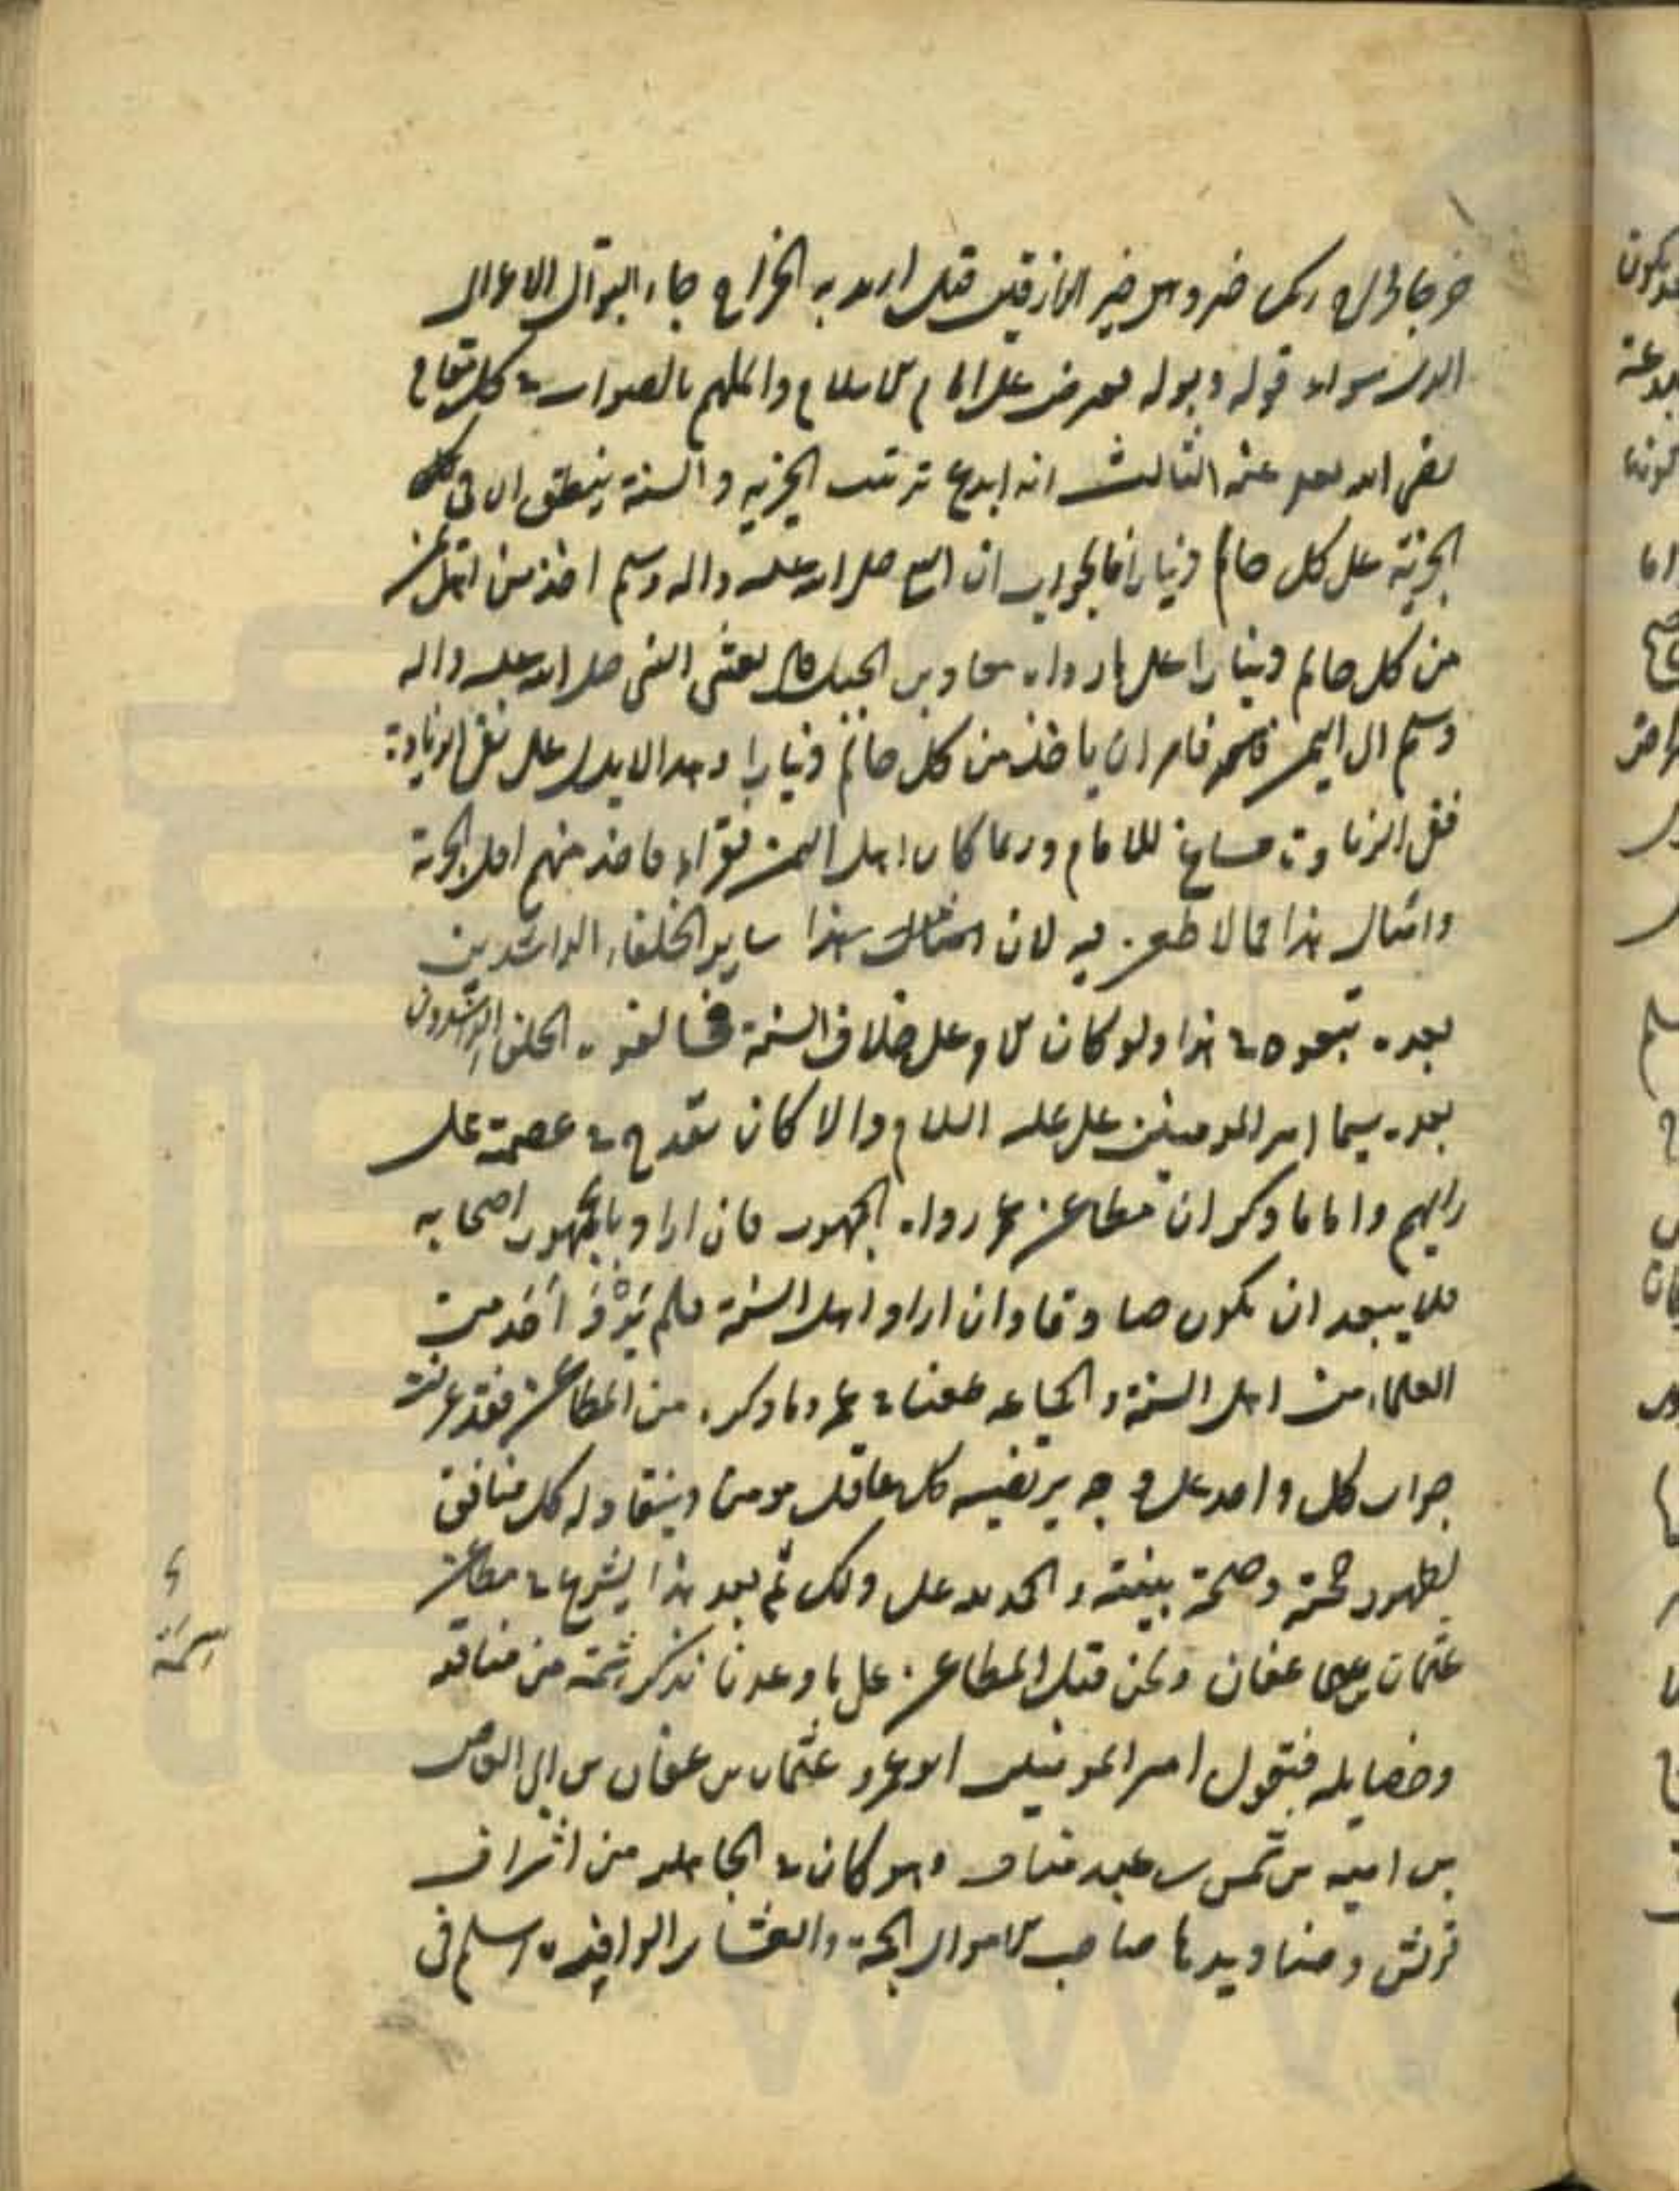 خرجا فخراج ربك خير وهو خير الرازقين قيل اريد به الخراج جاء السؤال الاعوال
قوله وبوله على الامام والملهم بالصواب كل مقام
رضى الله عنه الثالث انه ابدع ترتيب الجزية والسنة ينطق ان فى تلك
الجزية على كل حالم دينارا فالجواب ان النبي صلى الله عليه واله وسلم اخذ من اهل اليمن
من كل حالم دينارا على ما رواه معاذ بن الجبل قال بعثنى النبى صلى الله عليه واله
وسلم الى اليمن فامر ان ياخذ من كل حالم دينارا وهذا لا يدل على نفى الزيادة
ففى الزيادة مساغ للامام وربما كان اهل اليمن فقراء فاخذ منهم اقل الجزية
وامثال هذا مما لا طعن فيه لان امثال هذا ساير الخلفاء الراشدين
بعده تبعوه فى هذا ولو كان على خلاف السنة لخالفوه الخلفاء الراشدون
بعده سيما امير المومنين على عليه السلام والا كان يقدح فى عصمته على
رايهم واما ما ذكر ان مطاعن عمر رواه الجمهور فان اراد بالجمهور اصحابه
فلا يبعد ان يكون صادقا وان اراد اهل السنة فلم يَرْوِ أحد من
العلماء من اهل السنة والجماعه طعنا فى عمر وما ذكره من المطاعن فقد عرفت
جواب كل واحد على وجه يرتضيه كل عاقل مومن وينقاد له كل منافق
لظهور حجته وصحة بينته والحمد لله على ذلك ثم بعد هذا يشرع فى مطاعن
عثمان بن عفان ونحن قبل المطاعن على ما وعدنا نذكر شمة من مناقبه
وفضايله فنقول امير المومنين ابو عمرو عثمان بن عفان بن ابى العاص
بن اميه بن شمس بن عبد مناف وهو كان فى الجاهليه من اشراف
قريش وصناديدها صاحب الاموال الجمة والعشاير الوافره اسلم فى